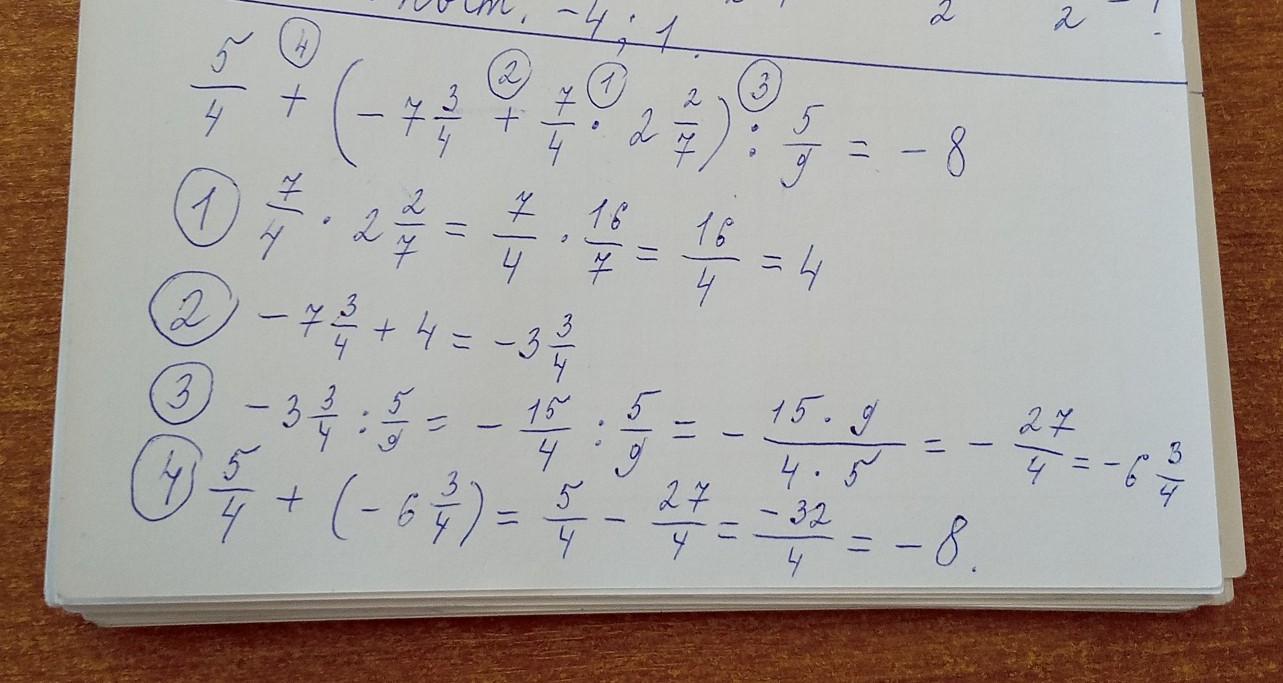 -4; 1.
5/4 + (- 7 3/4 + 7/4 · 2 2/7) : 5/9 = - 8
① 7/4 · 2 2/7 = 7/4 · 16/7 = 16/4 = 4
② - 7 3/4 + 4 = - 3 3/4
③ - 3 3/4 : 5/9 = - 15/4 : 5/9 = - 15 · 9/4 · 5 = - 27/4 = - 6 3/4
④ 5/4 + (- 6 3/4) = 5/4 - 27/4 = -32/4 = - 8.